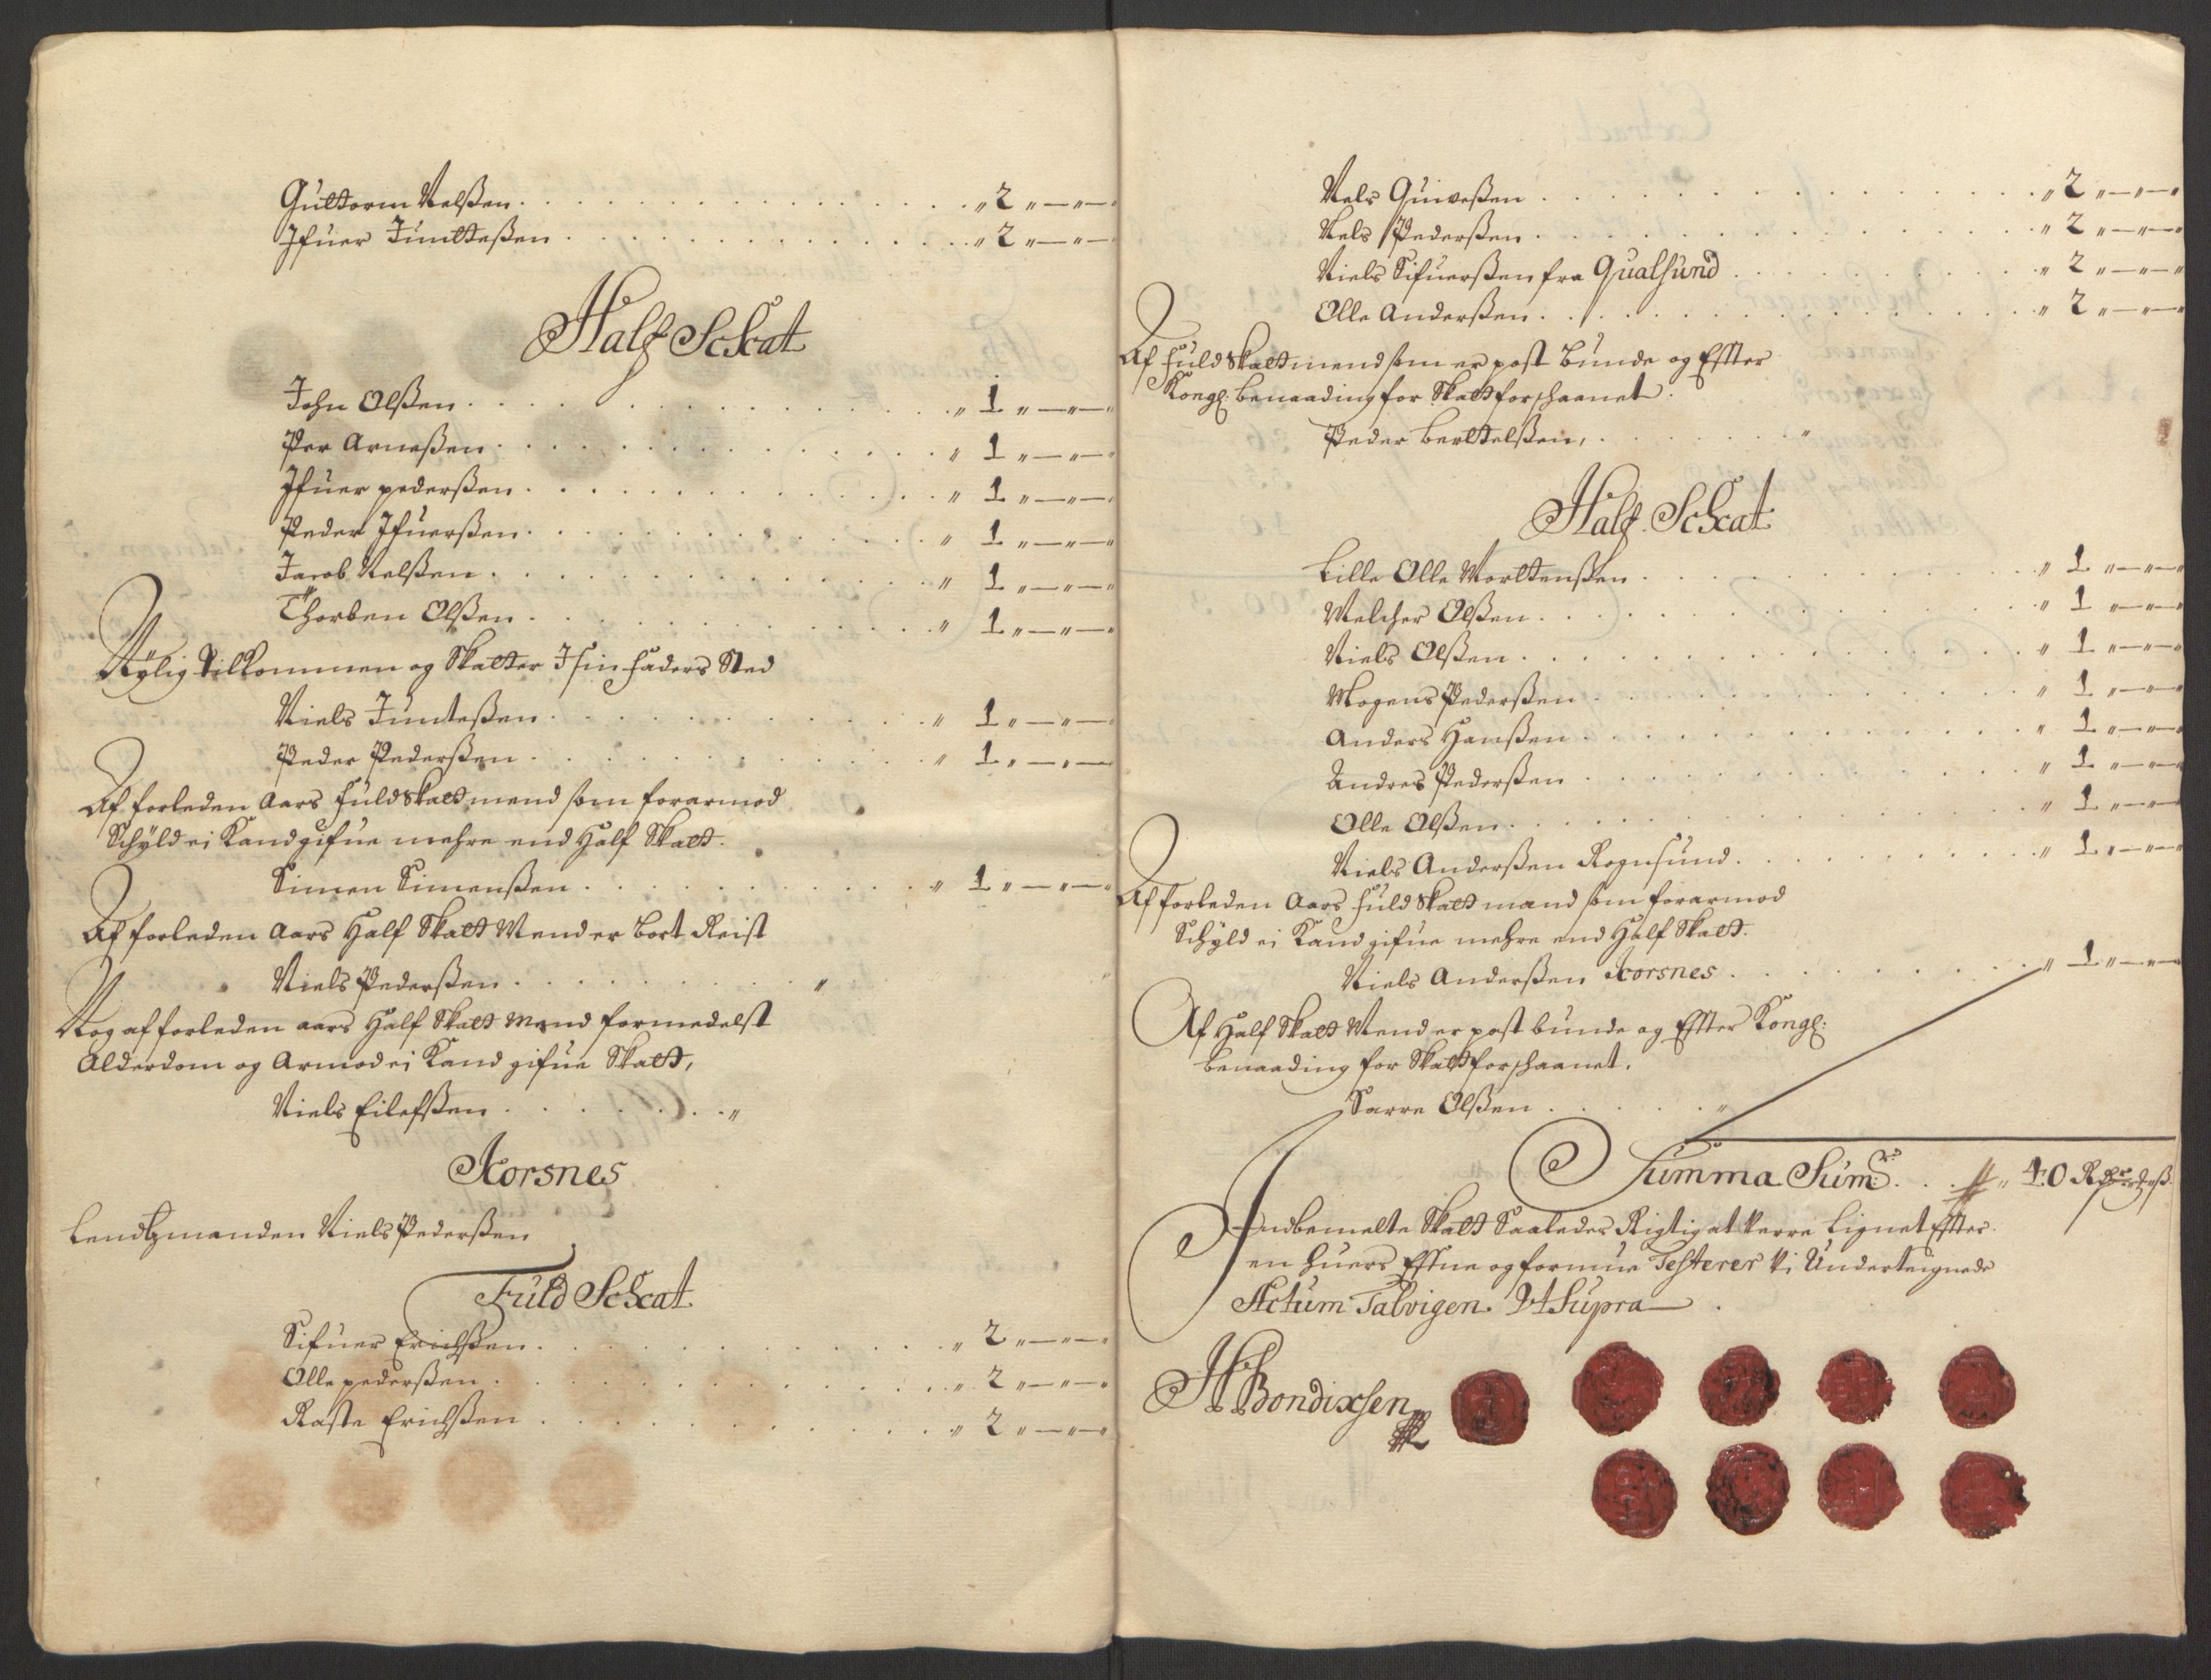 Guttorm Nelßen . . . . „ 2 „ — „ — „
Ifuer Juntteßen . . . . „ 2 „ — „ —
Half Schat
John Olßen . . . . „ 1 „ — „ — „
Per Arneßen . . . . „ 1 „ — „ — „
Ifuer pederßen . . . . „ 1 „ — „ — „
Peder Ifuerßen . . . . „ 1 „ — „ — „
Jacob Nelßen . . . . „ 1 „ — „ — „
Thorben Olßen . . . . „ 1 „ — „ — „
Nÿlig Tilkommen og Skatter I sin faders Sted
Niels Junteßen . . . . „ 1 „ — „ —
Peder Pederßen . . . . „ 1 „ — „ —
Af forleden Aars fuld Skatt mend som for armod
Schÿld ei Kand gifue mehre end Half Skatt.
Simen Simenßen . . . . „ 1 „ — „ — „
Af forleden Aars Half Skatt Mend er bort Reist
Niels Pederßen . . . . „
Nog af forleden aars Half Skatt Mend formedelst
Alderdom og Armod ei Kand gifue Skatt,
Niels Eilefßen . . . . „
Korsnes
Lendtzmanden Niels Pederßen
Fuld Schat
Sifuer Erichßen . . . . „ 2 „ — „ — „
Olle pederßen . . . . „ 2 „ — „ — „
Raste Erichßen . . . . „ 2 „ — „ — „
Nels Guiveßen . . . . „ 2 „ — „ — „
Nels Pederßen . . . . „ 2 „ — „ — „
Niels Sifuerßen fra Qualsund . . . . „ 2 „ — „ — „
Olle Anderßen . . . . „ 2 „ — „ —
Af fuld Skatt mend som er post bunde og Effter
Kongl: benaading for Skatt forschaanet.
Peder Berttelßen, . . . . „
Half Schat
Lille Olle Morttenßen . . . . „ 1 „ — „ — „
Melcher Olßen . . . . „ 1 „ — „ — „
Niels Olßen . . . . „ 1 „ — „ — „
Mogens Pederßen . . . . „ 1 „ — „ — „
Anders Hanßen . . . . „ 1 „ — „ — „
Andres Pederßen . . . . „ 1 „ — „ — „
Olle Olßen . . . . „ 1 „ — „ — „
Niels Anderßen Rognsund . . . . „ 1 „ — „ — „
Af forleden Aars fuld Skatt mand som for armod
Schÿld ei Kand gifue mehre end Half Skatt.
Niels Anderßen Korsnes . . . . „ 1 „ — „ — „
Af Half Skatt Mend er post bunde og Effter Kongl:
benaading for Skatt forschaanet.
Sarre Olßen . . . . „
Summa Sum: . . . „ 40
Indbemelte Skatt Saaledes Rigtig at Verre Lignet Effter
en huers Effne og formue Testerer Vi Underteignede
Actum Talvigen. Vt Supra
H Bondixsen